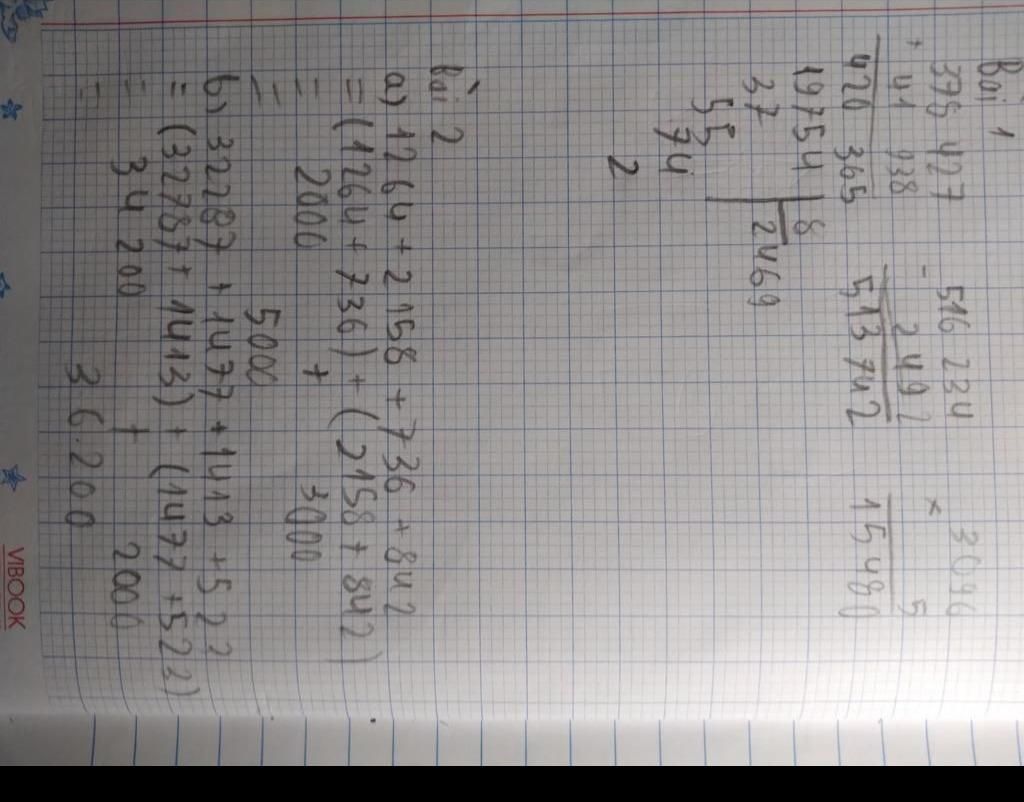 Bài 1
378 427 516 234 3096
+ 41 938 - 2 492 × 5
420 365 513 742 15480
19754 8
37 2469
55
74
2
Bài 2
a) 1264 + 2158 + 736 + 842
= (1264 + 736) + (2158 + 842)
= 2000 + 3000
= 5000
b) 32287 + 1477 + 1413 + 523
= (32787 + 1413) + (1477 + 523)
= 34 200 + 2000
= 36.200
VIBOOK